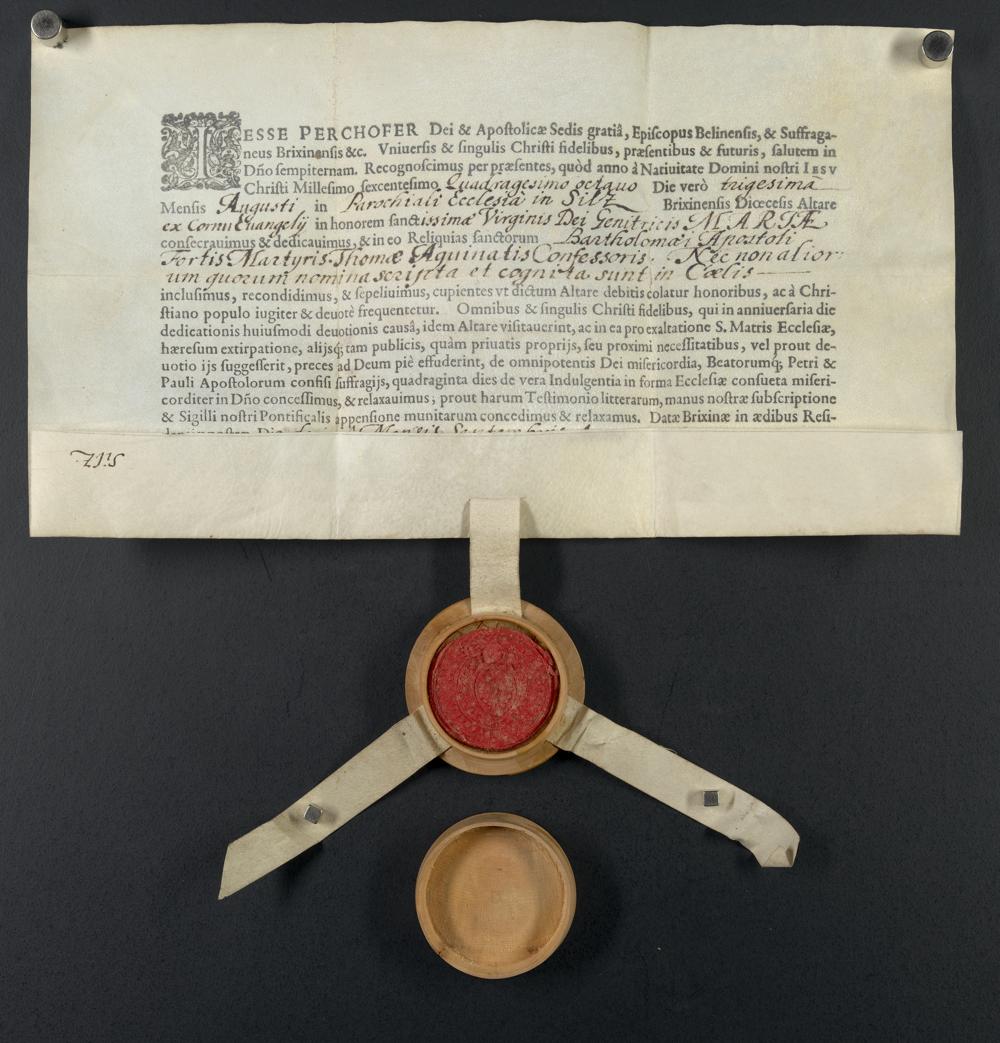 IESSE PERCHOFER Dei & Apostolicæ Sedis gratiâ, Episcopus Belinensis, & Suffraga-
neus Brixinensis &c. Vniuersis & singulis Christi fidelibus, præsentibus & futuris, salutem in
Dño sempiternam. Recognoscimus per præsentes, quòd anno à Natiuitate Domini nostri IESV
Christi Millesimo sexcentesimo Quadragesimo octauo Die verò trigesima
Mensis Augusti in Parochiali Ecclesia in Silz Brixinensis Diœcesis Altare
ex Cornu Euangelij in honorem sanctissimæ Virginis Dei Genitricis MARIÆ
consecrauimus & dedicauimus, & in eo Reliquias sanctorum Bartholomæi Apostoli
Fortis Martyris Thomæ Aquinatis Confessoris. Nec non alior:
um quorum nomina scripta et cognita sunt in Cœlis
inclusimus, recondidimus, & sepeliuimus, cupientes vt dictum Altare debitis colatur honoribus, ac à Chri-
stiano populo iugiter & deuotè frequentetur. Omnibus & singulis Christi fidelibus, qui in anniuersaria die
dedicationis huiusmodi deuotionis causâ, idem Altare visitauerint, ac in ea pro exaltatione S. Matris Ecclesiæ,
hæresum extirpatione, alijsq; tam publicis, quàm priuatis proprijs, seu proximi necessitatibus, vel prout de-
uotio ijs suggesserit, preces ad Deum piè effuderint, de omnipotentis Dei misericordia, Beatorumq; Petri &
Pauli Apostolorum confisi suffragijs, quadraginta dies de vera Indulgentia in forma Ecclesiæ consueta miseri-
corditer in Dño concessimus, & relaxauimus; prout harum Testimonio litterarum, manus nostræ subscriptione
& Sigilli nostri Pontificalis appensione munitarum concedimus & relaxamus. Datæ Brixinæ in ædibus Resi-
Mensis Septembris
Silz